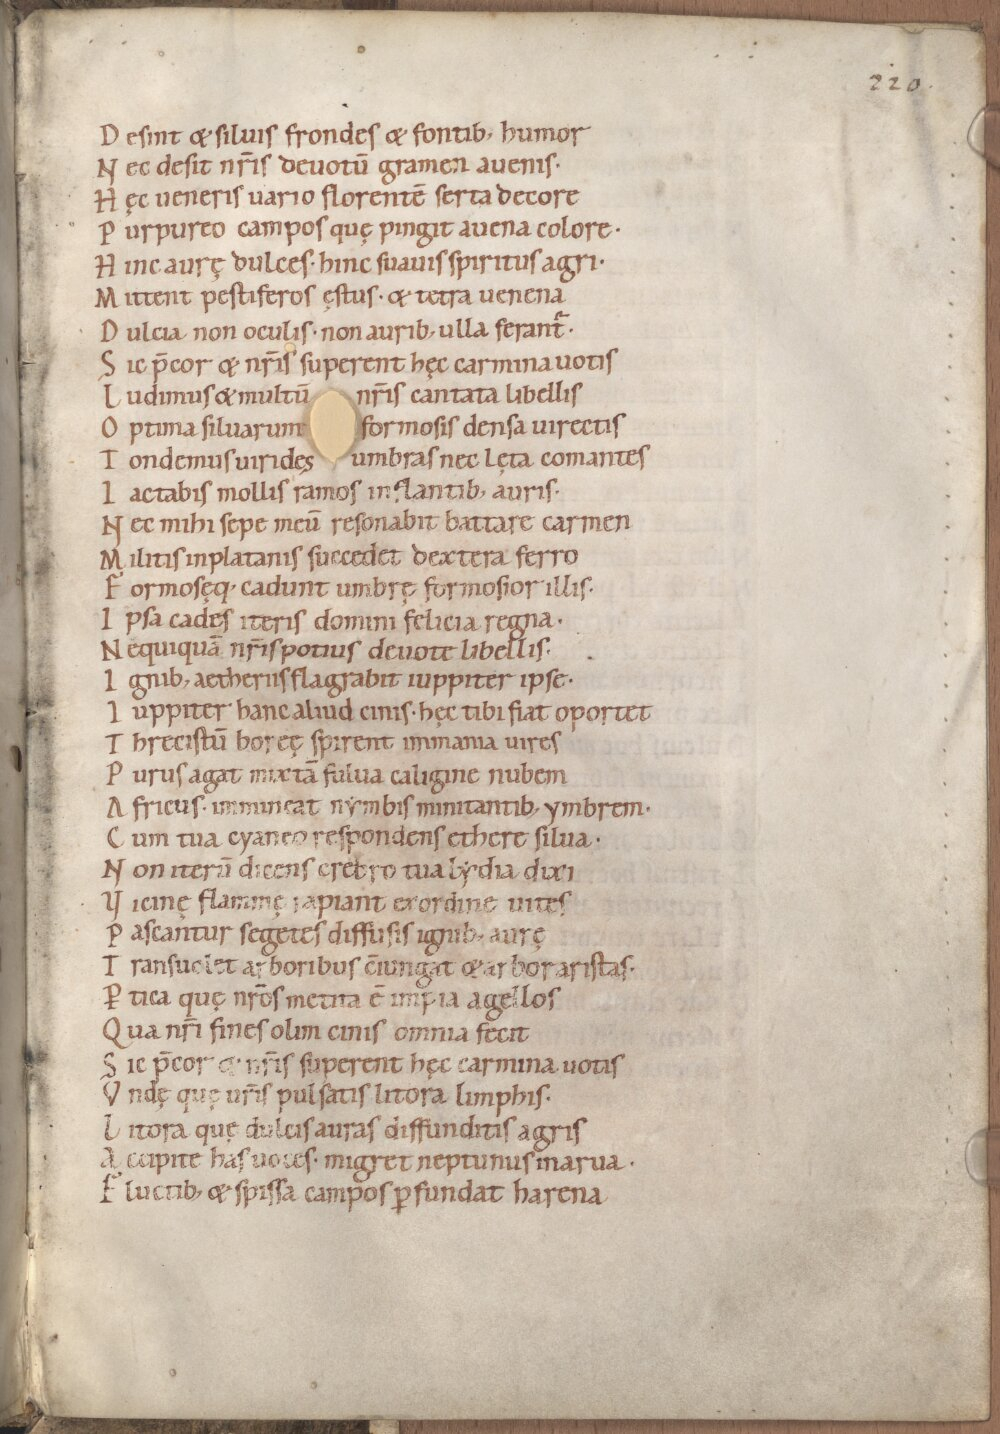 220.
D esint & siluis frondes & fontib; humor
N ec desit nr̄is deuotū gramen auenis·
H ęc ueneris uario florentē serta decore
P urpureo campos quę pingit auena colore·
H inc aurę dulces· hinc suauis spiritus agri·
M ittent pestiferos ęstus· & tetra uenena
D ulcia non oculis· non aurib; ulla ferant̄·
S ic p̄cor & nr̄is superent hęc carmina uotis
L udimus & multū nr̄is cantata libellis
O ptima siluarum formosis densa uirectis
T ondemus uirides umbras nec lęta comantes
I actabis mollis ramos inflantib; auris·
N ec mihi sepe meū resonabit battare carmen
M ilitis inplatanis succedet dextera ferro
F ormosęq; cadunt umbrę formosior illis·
I psa cades iteris domini felicia regna·
N equiquā nr̄is potius deuote libellis·
I gnib; aetheriis flagrabit iuppiter ipse·
I uppiter hanc aliud cinis· hęc tibi fiat oportet
T hrecistū boreę spirent immania uires
P urus agat mixtā fulua caligine nubem
A fricus· immineat nymbis minitantib; ymbrem·
C um tua cyaneo respondens ethere silua·
N on iterū dicens crebro tua lydia dixi
V icinę flammę rapiant exordine uites
P ascantur segetes diffusis ignib; aurę
T ransuolet arboribus c̄iungat & arbor aristas·
P tica quę nr̄os metita ē impia agellos
Q ua nr̄i fines olim cinis omnia fecit
S ic p̄cor & nr̄is superent hęc carmina uotis
V ndę quę ur̄is pulsatis litora limphis·
L itora quę dulcis auras diffunditis agris
A ccipite has uoces· migret neptunus inarua·
F luctib; & spissa campos ꝑfundat harena